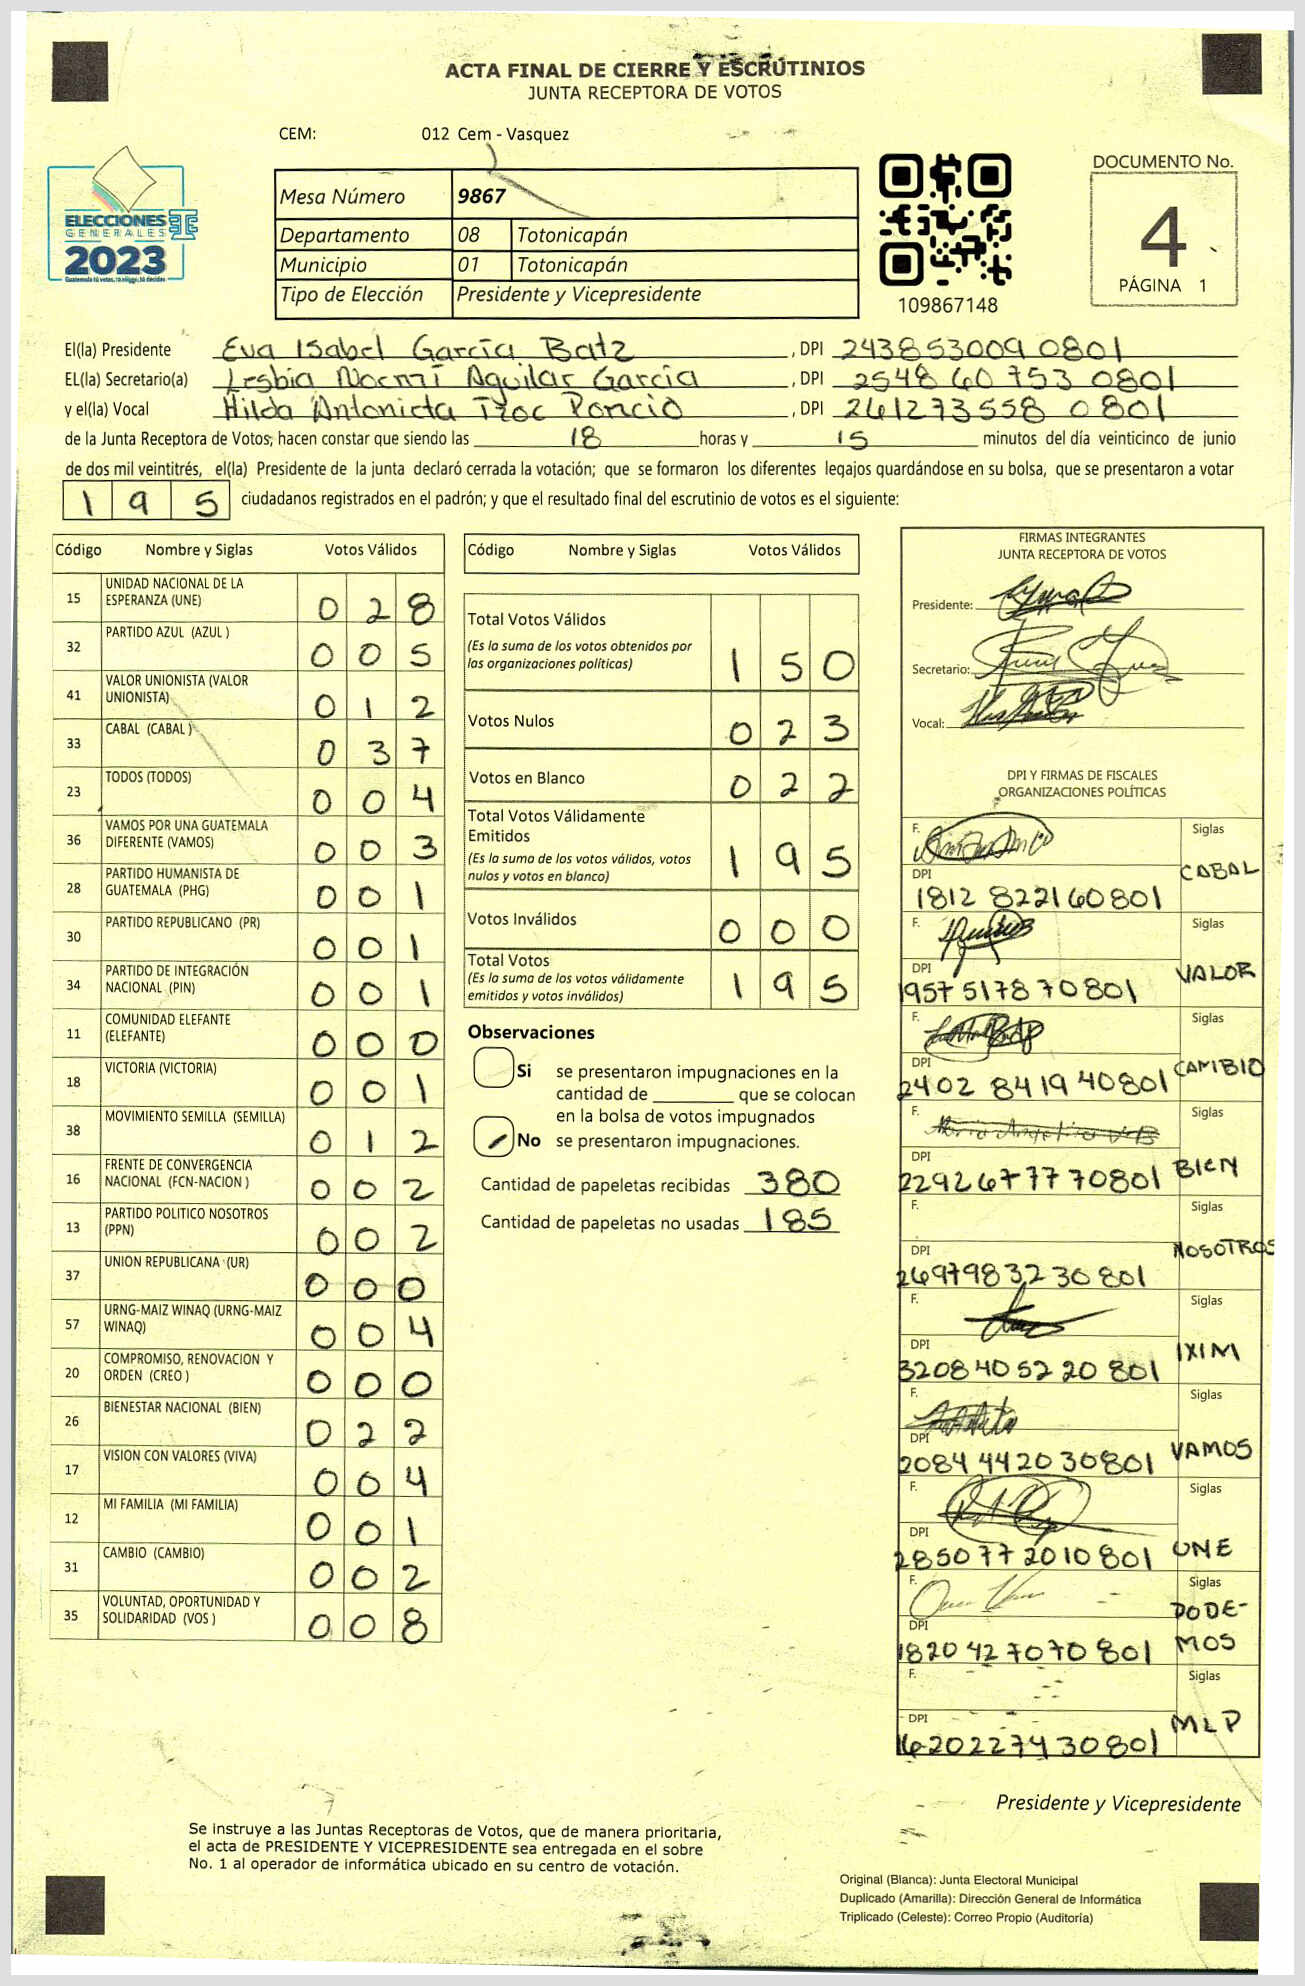 ACTA FINAL DE CIERRE Y ESCRUTINIOS
JUNTA RECEPTORA DE VOTOS
CEM: 012 Cem - Vasquez
ELECCIONES
GENERALES
2023
Guatemala tú votas, tú eliges, tú decides
Mesa Número 9867
Departamento 08 Totonicapán
Municipio 01 Totonicapán
Tipo de Elección Presidente y Vicepresidente
109867148
DOCUMENTO No.
4
PÁGINA 1
El(la) Presidente Eva Isabel García Batz , DPI 243853009 0801
EL(la) Secretario(a) Lesbia Noemí Aguilar García , DPI 2548 60753 0801
y el(la) Vocal Hilda Antonieta Tzoc Poncio , DPI 261273558 0801
de la Junta Receptora de Votos, hacen constar que siendo las 18 horas y 15 minutos del día veinticinco de junio
de dos mil veintitrés, el(la) Presidente de la junta declaró cerrada la votación; que se formaron los diferentes legajos guardándose en su bolsa, que se presentaron a votar
195 ciudadanos registrados en el padrón; y que el resultado final del escrutinio de votos es el siguiente:
Código Nombre y Siglas Votos Válidos
15 UNIDAD NACIONAL DE LA ESPERANZA (UNE) 028
32 PARTIDO AZUL (AZUL ) 005
41 VALOR UNIONISTA (VALOR UNIONISTA) 012
33 CABAL (CABAL ) 037
23 TODOS (TODOS) 004
36 VAMOS POR UNA GUATEMALA DIFERENTE (VAMOS) 003
28 PARTIDO HUMANISTA DE GUATEMALA (PHG) 001
30 PARTIDO REPUBLICANO (PR) 001
34 PARTIDO DE INTEGRACIÓN NACIONAL (PIN) 001
11 COMUNIDAD ELEFANTE (ELEFANTE) 000
18 VICTORIA (VICTORIA) 001
38 MOVIMIENTO SEMILLA (SEMILLA) 012
16 FRENTE DE CONVERGENCIA NACIONAL (FCN-NACION ) 002
13 PARTIDO POLITICO NOSOTROS (PPN) 002
37 UNION REPUBLICANA (UR) 000
57 URNG-MAIZ WINAQ (URNG-MAIZ WINAQ) 004
20 COMPROMISO, RENOVACION Y ORDEN (CREO ) 000
26 BIENESTAR NACIONAL (BIEN) 022
17 VISION CON VALORES (VIVA) 004
12 MI FAMILIA (MI FAMILIA) 001
31 CAMBIO (CAMBIO) 002
35 VOLUNTAD, OPORTUNIDAD Y SOLIDARIDAD (VOS ) 008
Código Nombre y Siglas Votos Válidos
Total Votos Válidos
(Es la suma de los votos obtenidos por
las organizaciones políticas) 150
Votos Nulos 023
Votos en Blanco 022
Total Votos Válidamente
Emitidos
(Es la suma de los votos válidos, votos
nulos y votos en blanco) 195
Votos Inválidos 000
Total Votos
(Es la suma de los votos válidamente
emitidos y votos inválidos) 195
Observaciones
Si se presentaron impugnaciones en la
cantidad de ________ que se colocan
en la bolsa de votos impugnados
No se presentaron impugnaciones.
Cantidad de papeletas recibidas 380
Cantidad de papeletas no usadas 185
FIRMAS INTEGRANTES
JUNTA RECEPTORA DE VOTOS
Presidente:
Secretario:
Vocal:
DPI Y FIRMAS DE FISCALES
ORGANIZACIONES POLÍTICAS
F. Siglas
DPI CABAL
1812 82216 0801
F. Siglas
DPI VALOR
1957 51787 0801
F. Siglas
DPI CAMBIO
2402 84194 0801
F. Siglas
DPI BIEN
2292 67777 0801
F. Siglas
DPI NOSOTROS
2697983230801
F. Siglas
DPI IXIM
3208 40522 0801
F. Siglas
DPI VAMOS
2084 44203 0801
F. Siglas
DPI UNE
2850 77201 0801
F. Siglas
DPI PODE-
MOS
1820 42707 0801
F. Siglas
DPI MLP
1620227430801
Presidente y Vicepresidente
Se instruye a las Juntas Receptoras de Votos, que de manera prioritaria,
el acta de PRESIDENTE Y VICEPRESIDENTE sea entregada en el sobre
No. 1 al operador de informática ubicado en su centro de votación.
Original (Blanca): Junta Electoral Municipal
Duplicado (Amarilla): Dirección General de Informática
Triplicado (Celeste): Correo Propio (Auditoría)